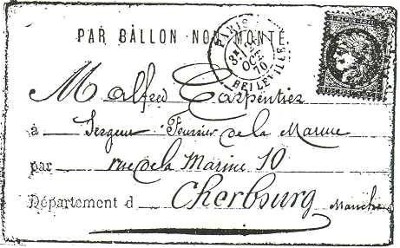 PAR BALLON NON MONTÉ.
PARIS
OCT.
70
BELLEVILLE
M Alfred Carpentier
à Sergent Fourrier de la Marine
par rue de la Marine 10
Département d Cherbourg Manche